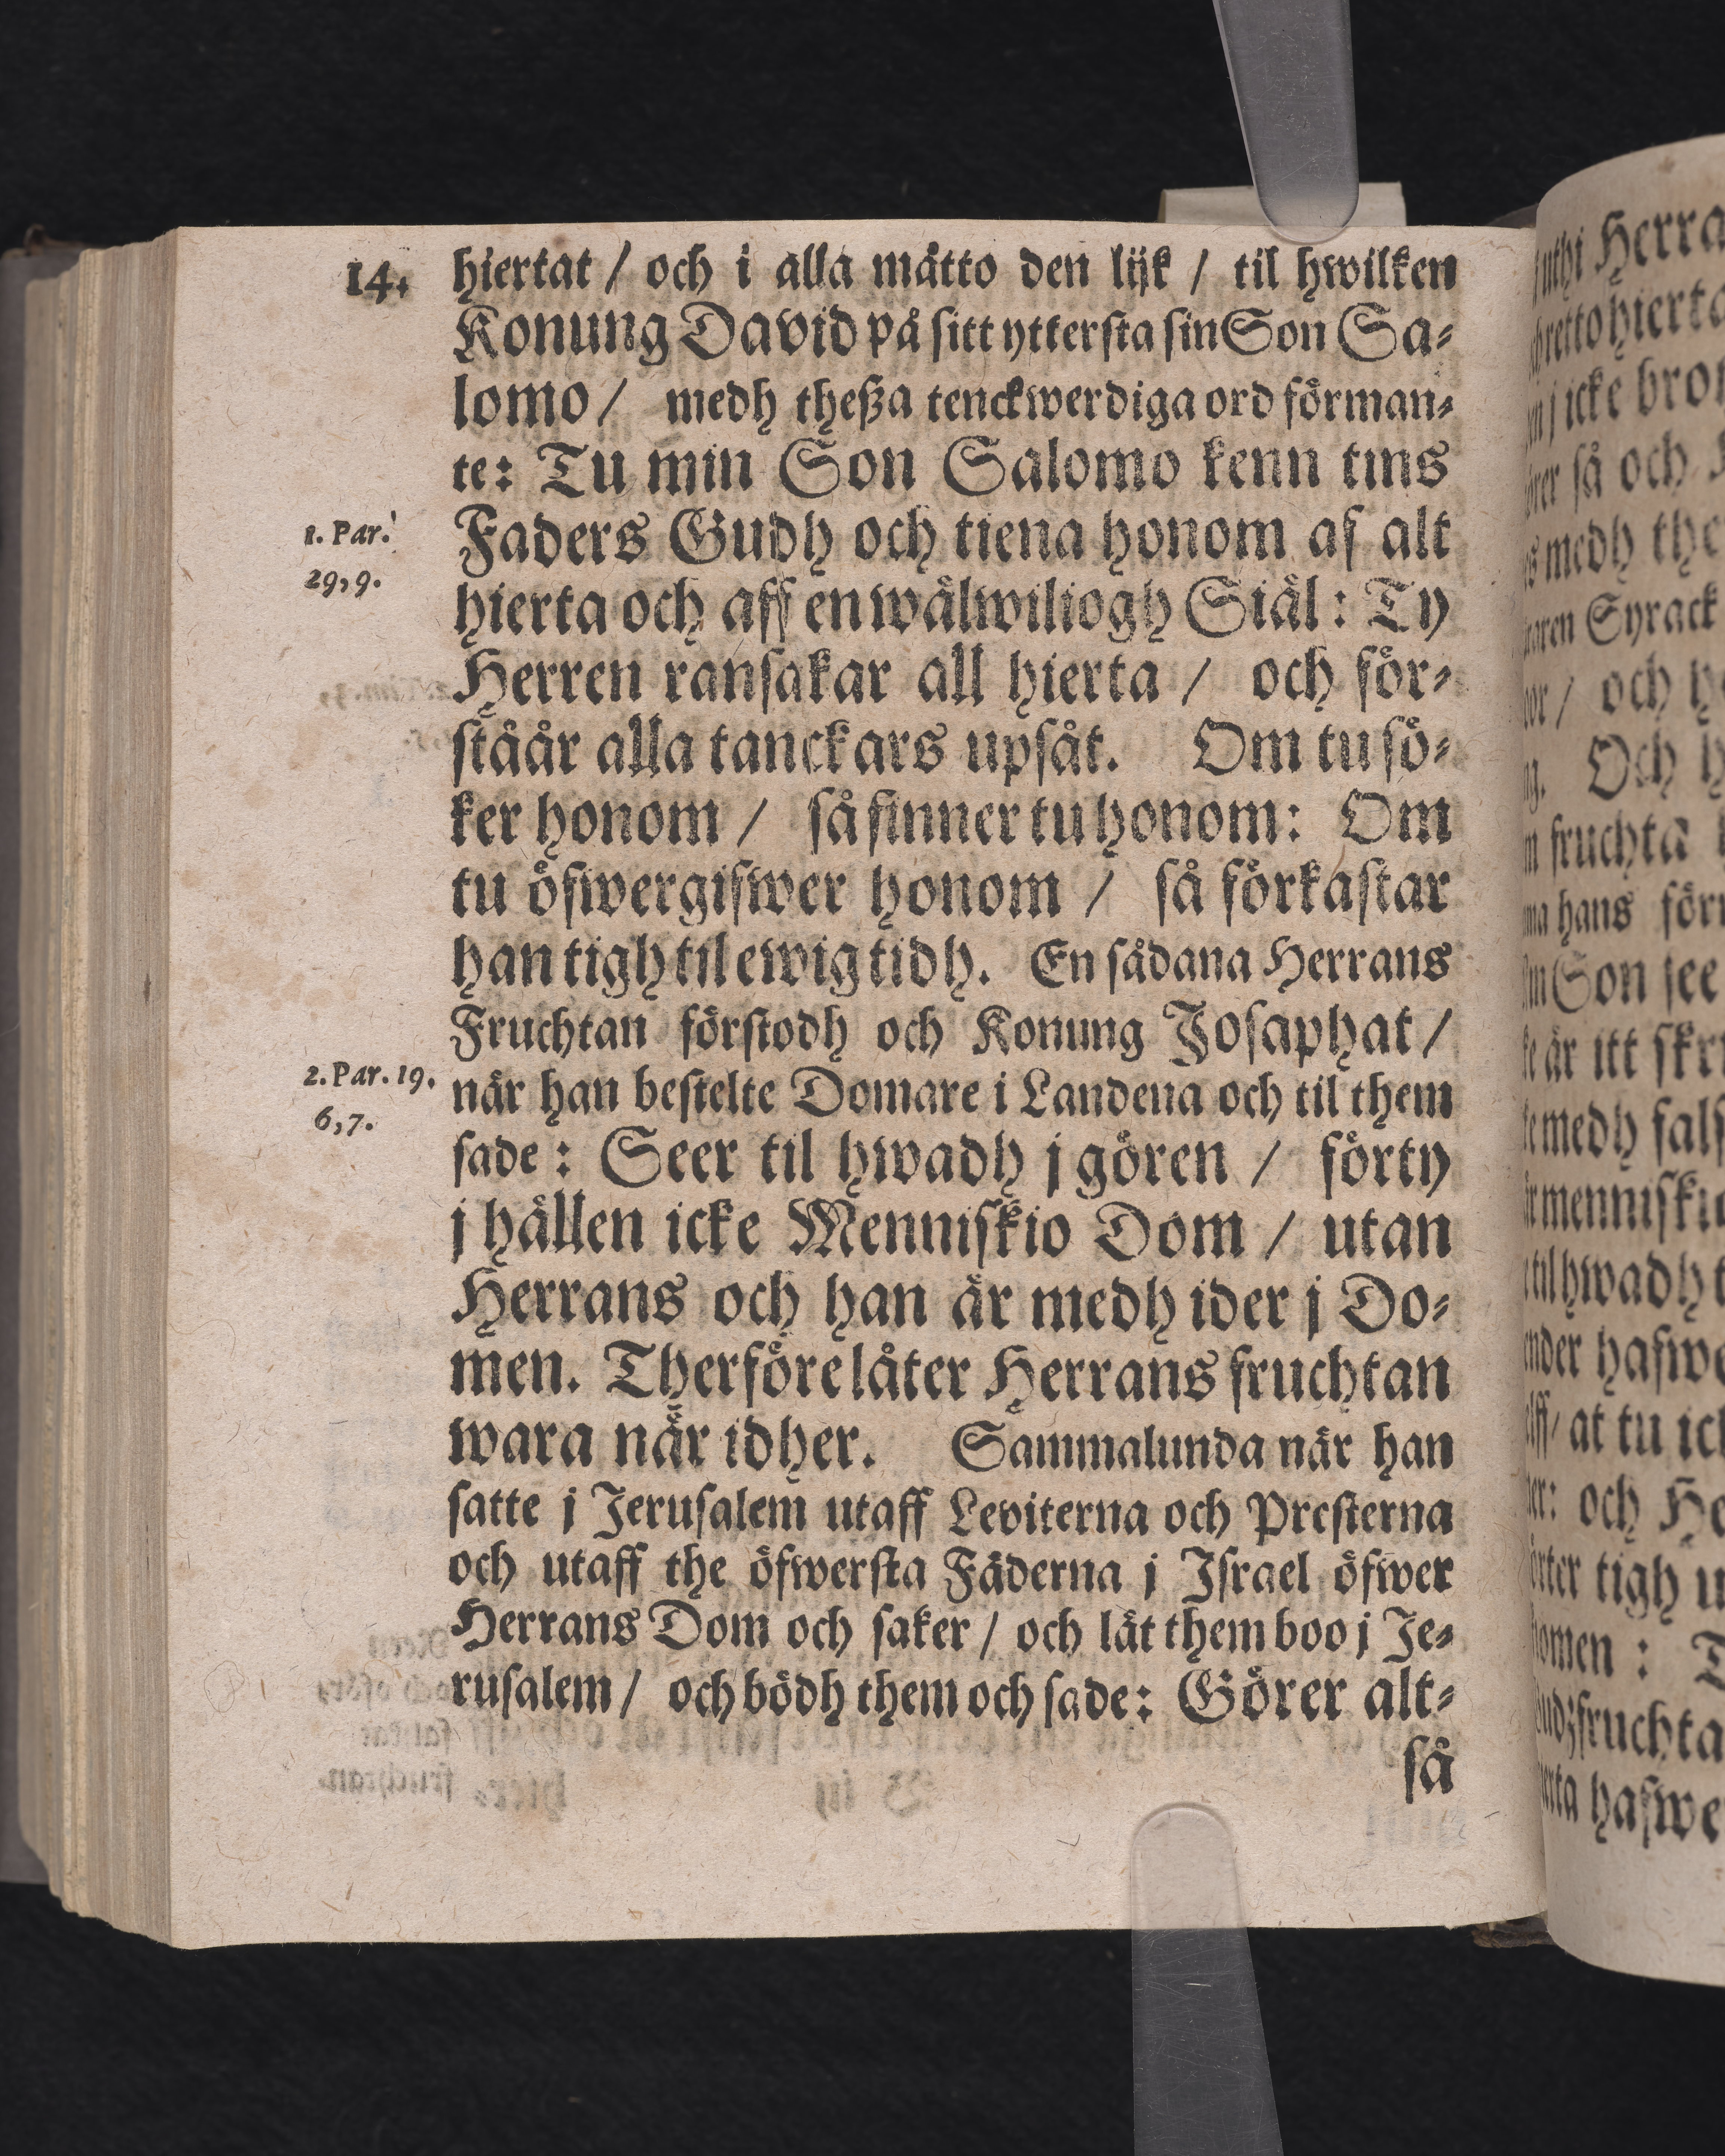 14.
hiertat / och i alla måtto den lijk / til hwilken
Konung David på sitt yttersta sin Son Sa-
lomo / medh theßa tenckwerdiga ord förman-
te: Tu min Son Salomo kenn tins
1. Par.
29, 9.
Faders Gudh och tiena honom af alt
hierta och aff en wälwiliogh Siäl: Ty
Herren ransakar all hierta / och för-
ståår alla tanckars upsåt. Om tu sö-
ker honom / så finner tu honom: Om
tu öfwergifwer honom / så förkastar
han tigh til ewig tidh. En sådana Herrans
Fruchtan förstodh och Konung Josaphat /
2. Par. 19.
6, 7.
när han bestelte Domare i Landena och til them
sade: Seer til hwadh j gören / förty
j hållen icke Menniskio Dom / utan
Herrans och han är medh ider j Do-
men. Therföre låter Herrans fruchtan
wara när idher. Sammalunda när han
satte j Jerusalem utaff Leviterna och Presterna
och utaff the öfwersta Fäderna j Israel öfwer
Herrans Dom och saker / och lät them boo j Je-
rusalem / och bödh them och sade: Görer alt-
så